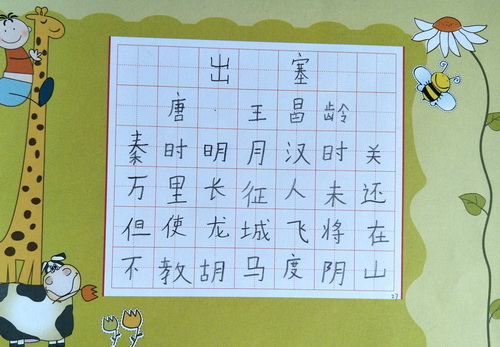 出塞
唐·王昌龄
秦时明月汉时关
万里长征人未还
但使龙城飞将在
不教胡马度阴山
27